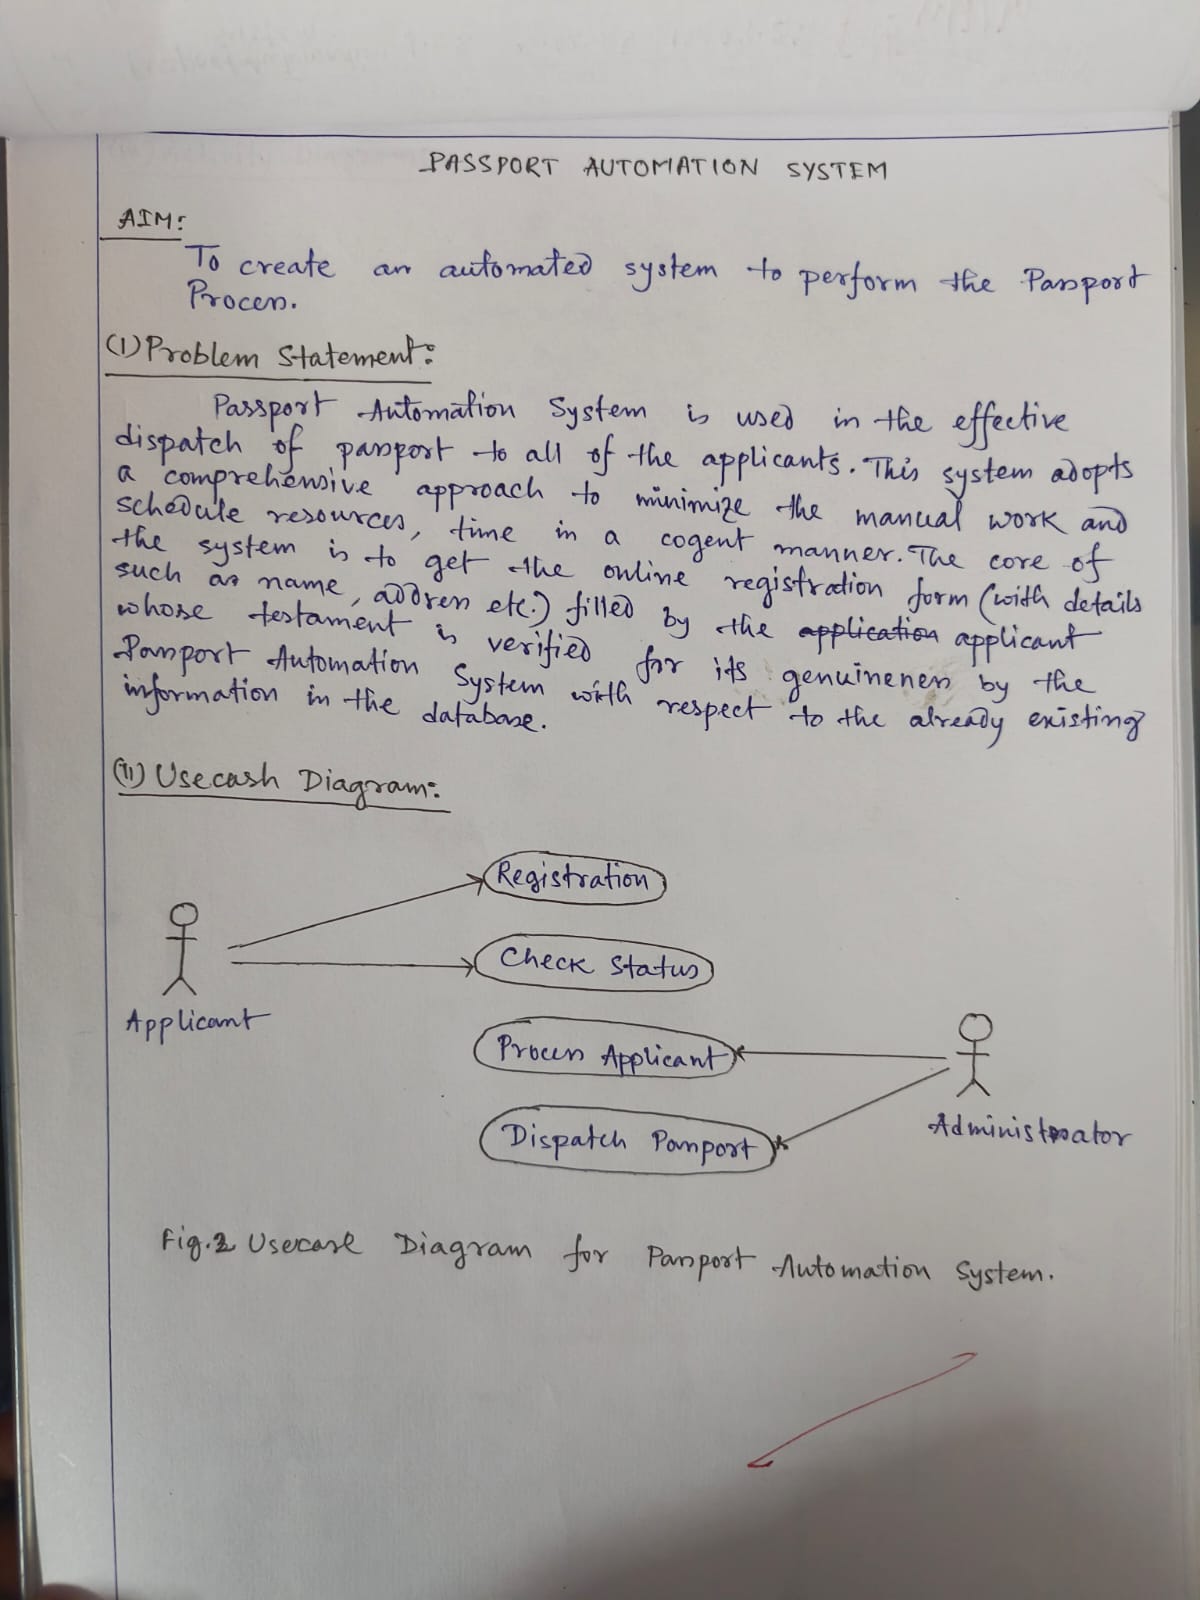 PASSPORT AUTOMATION SYSTEM
AIM:
To create an automated system to perform the Passport
Process.
(I) Problem Statement:
Passport Automation System is used in the effective
dispatch of passport to all of the applicants. This system adopts
a comprehensive approach to minimize the manual work and
schedule resources, time in a cogent manner. The core of
the system is to get the online registration form (with details
such as name, address etc.) filled by the application applicant
whose testament is verified for its genuineness by the
Passport Automation System with respect to the already existing
information in the database.
(II) Usecash Diagram:
Registration
Check Status
Applicant
Process Applicant
Dispatch Passport
Administrator
Fig.2 Usecase Diagram for Passport Automation System.